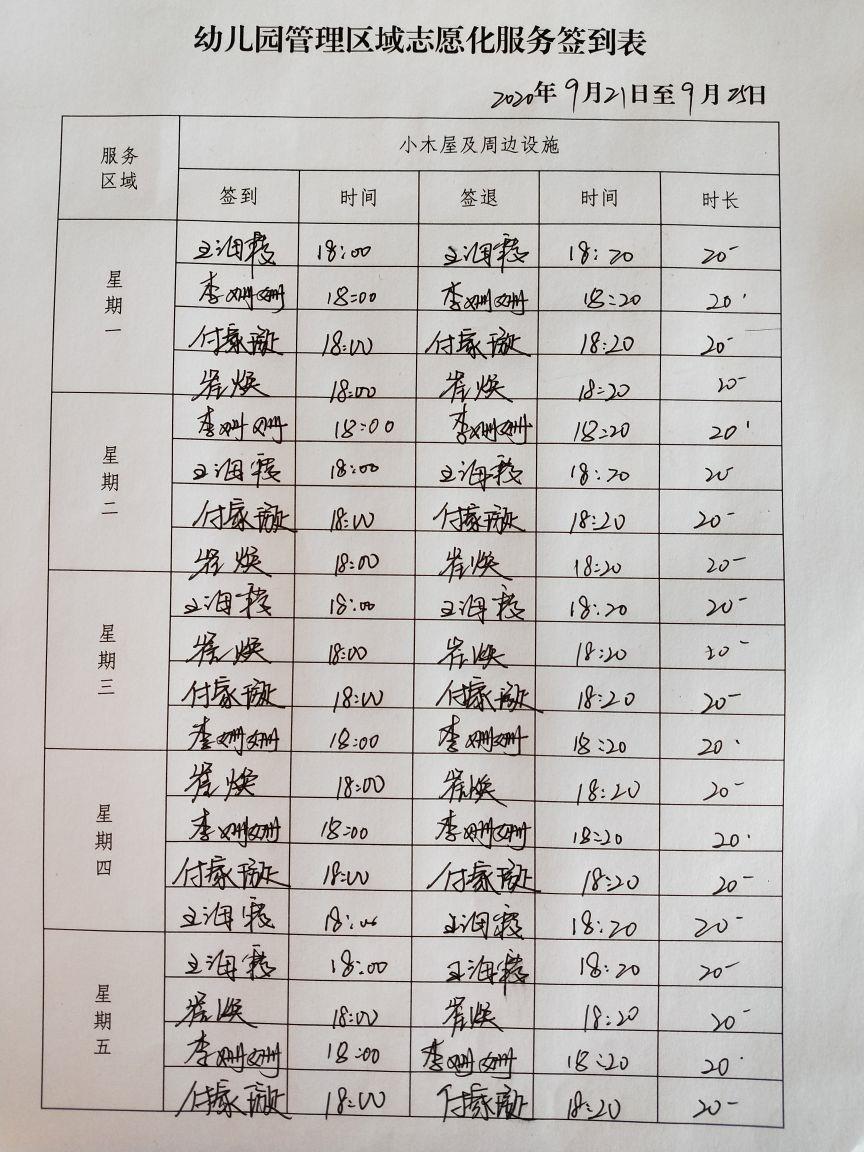 幼儿园管理区域志愿化服务签到表
2020年9月21日至9月25日
服务区域 小木屋及周边设施
签到 时间 签退 时间 时长
星期一
王海霞 18:00 王海霞 18:20 20-
李姗姗 18:00 李姗姗 18:20 20'
付家 18:00 付家 18:20 20-
崔焕 18:00 崔焕 18:20 20-
星期二
李姗姗 18:00 李姗姗 18:20 20'
王海霞 18:00 王海霞 18:20 20-
付家 18:00 付家 18:20 20-
崔焕 18:00 崔焕 18:20 20-
星期三
王海霞 18:00 王海霞 18:20 20-
崔焕 18:00 崔焕 18:20 20-
付家 18:00 付家 18:20 20-
李姗姗 18:00 李姗姗 18:20 20'
星期四
崔焕 18:00 崔焕 18:20 20-
李姗姗 18:00 李姗姗 18:20 20'
付家 18:00 付家 18:20 20-
王海霞 18:00 王海霞 18:20 20-
星期五
王海霞 18:00 王海霞 18:20 20-
崔焕 18:00 崔焕 18:20 20-
李姗姗 18:00 李姗姗 18:20 20'
付家 18:00 付家 18:20 20-